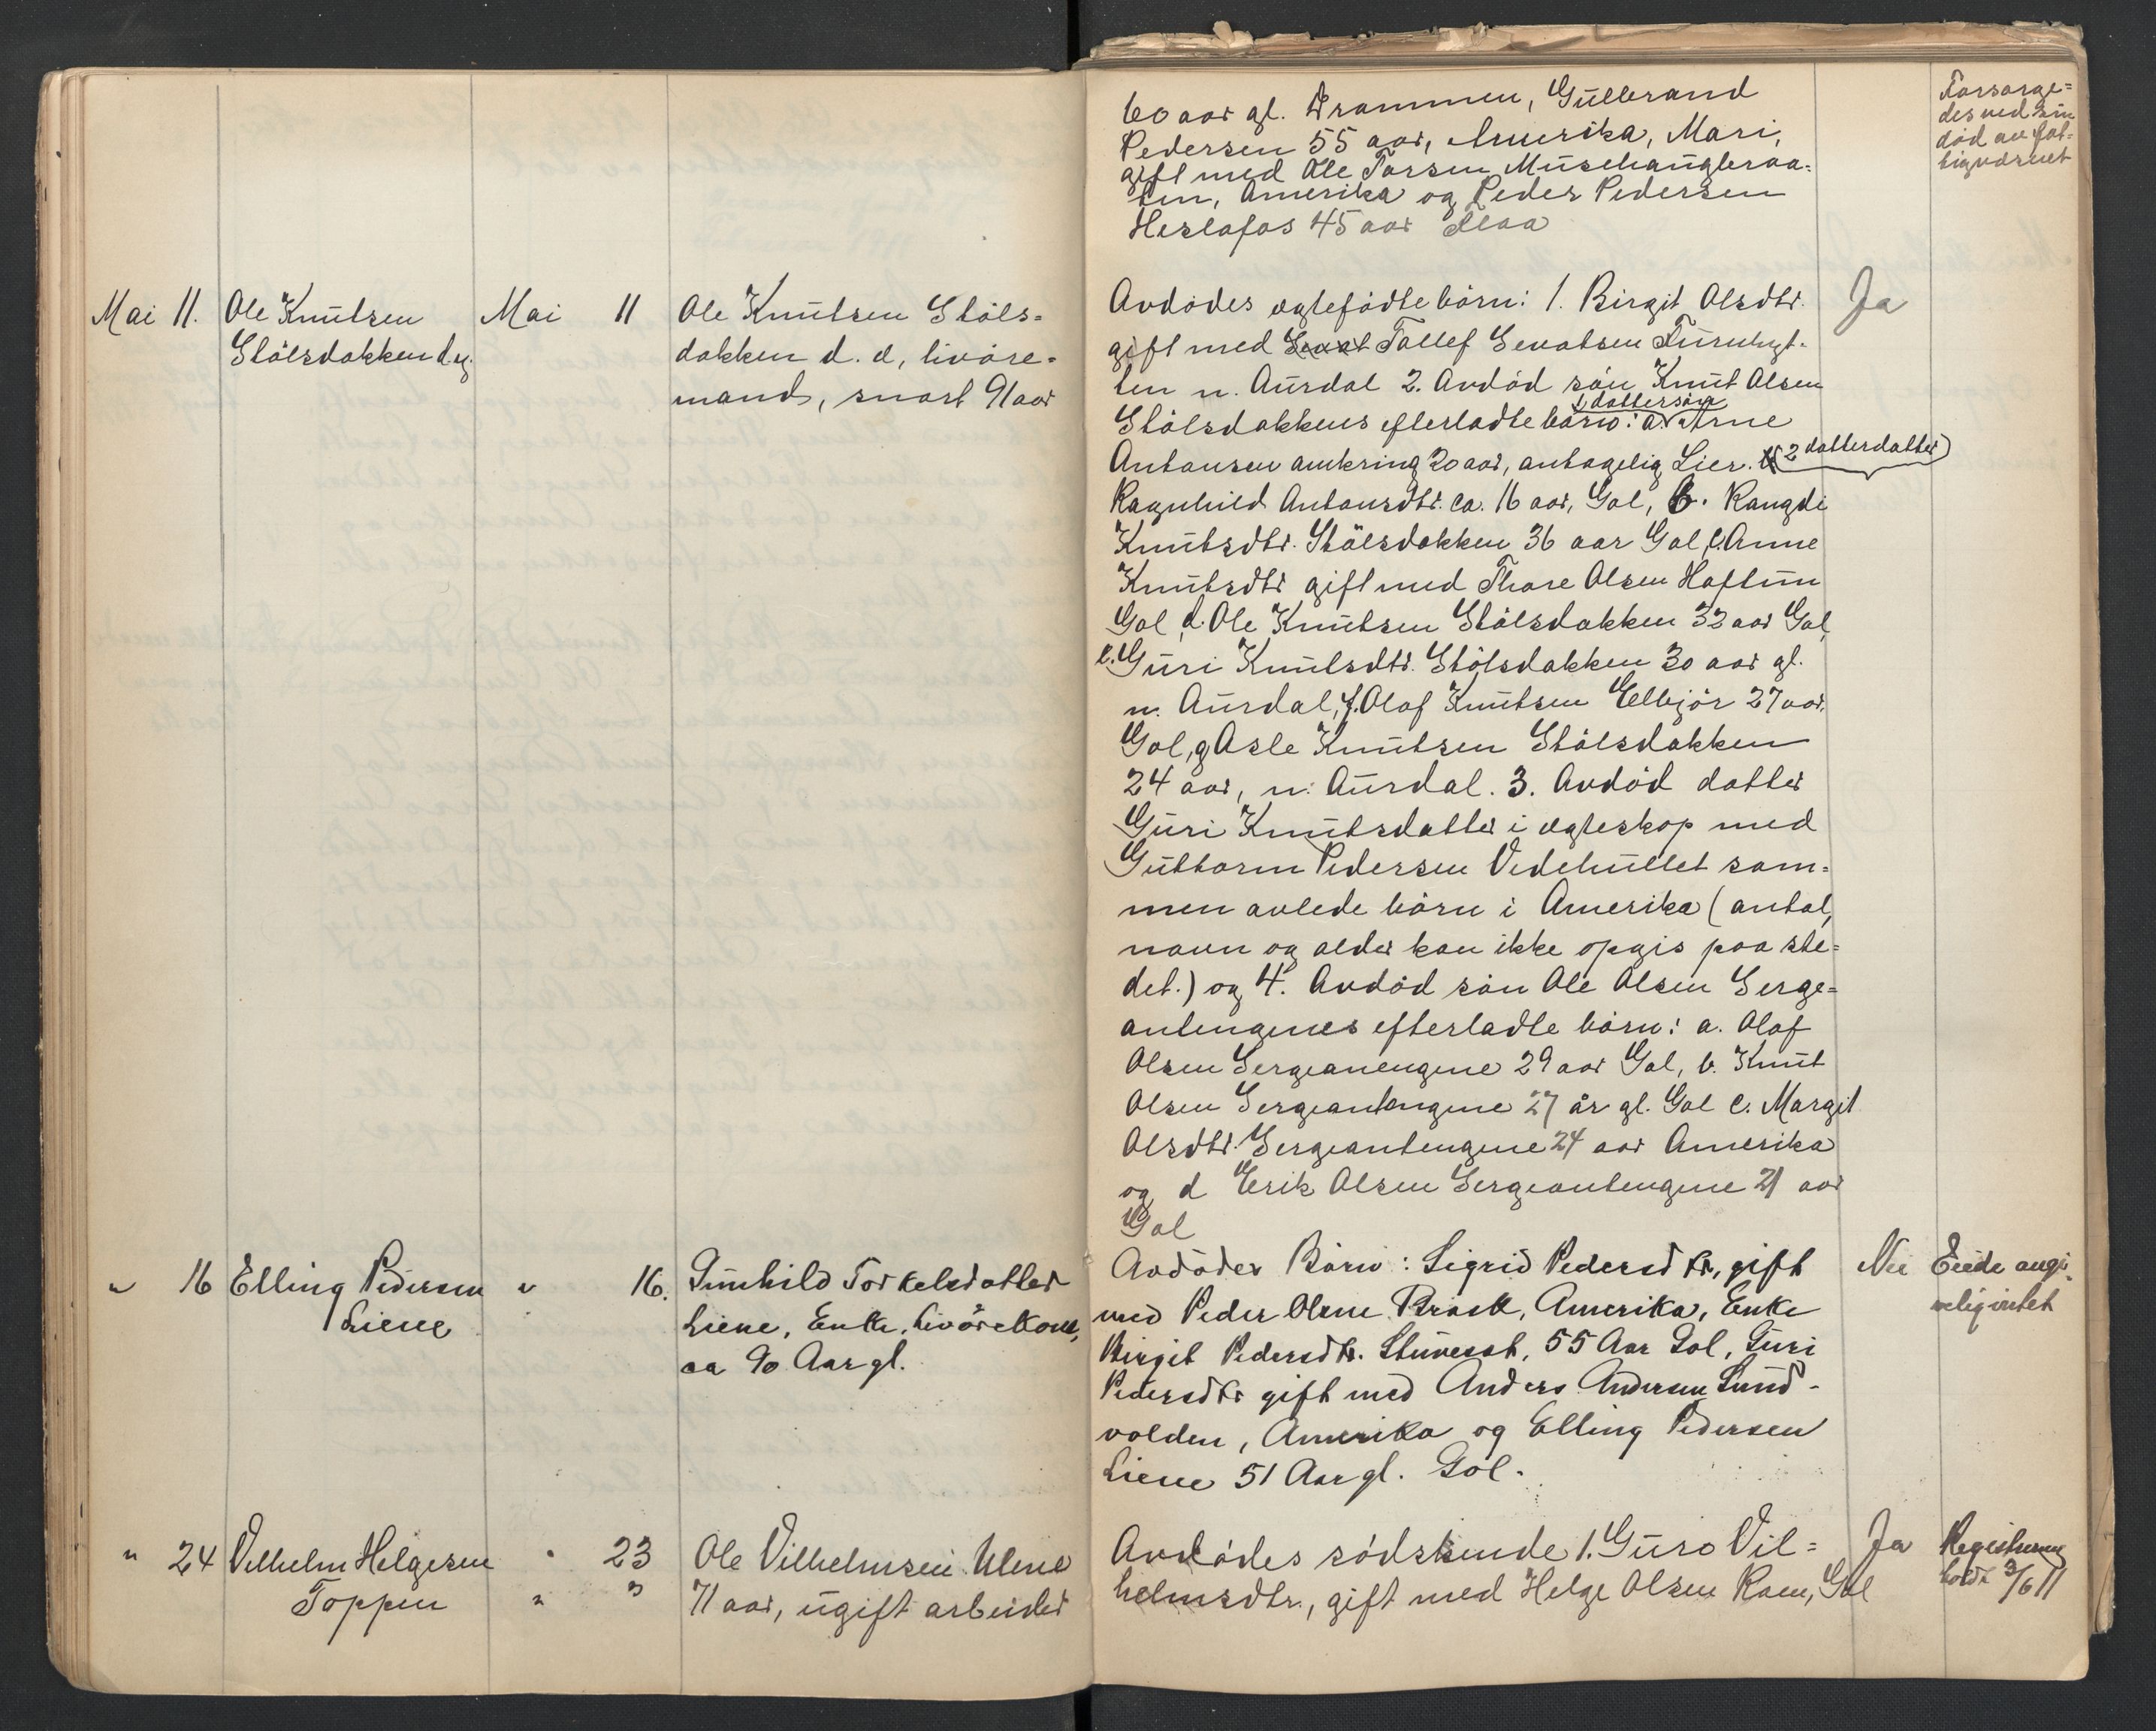 60 aar gl. Drammen, Gulbrand
Pedersen 55 aar, Amerika, Mari,
gift med Ole Torsen
ten, Amerika og Peder Pedersen
Heslafos 45 aar Flaa
Forsørge=
des ved sin
död av fat=
tigvæsnet
Mai 11.
Ole Knutsen
Stölsdokken d.y.
Mai 11
Ole Knutsen Stöls=
dokken d. e, livöre=
mand, snart 91 aar
Avdödes egtefödte börn: 1. Birgit Olsdtr.
gift med Sevat Tollef Sevatsen
ten n. Aurdal 2. Avdöd sön Knut Olsen
1, dattersön
Stölsdokkens efterladte börn: a. Arne
Antonsen omkring 20 aar, antagelig Lier. 2 datterdatter)
Ragnhild Antonsdtr. ca. 16 aar, Gol, b. Rangdi
Knutsdtr. Stölsdokken 36 aar Gol, c. Anne
Knutsdtr gift med Thore Olsen Haftun
Gol, d. Ole Knutsen Stölsdokken 32 aar Gol,
e. Guri Knutsdtr. Stölsdokken 30 aar gl.
n. Aurdal, f. Olaf Knutsen Elbjör 27 aar,
Gol, g Asle Knutsen Stölsdokken
24 aar, n. Aurdal. 3. Avdöd datter
Guri Knutsdatter i egteskap med
Guttorm Pedersen Vedehullet sam=
men avlede börn i Amerika (antal,
navn og alder kan ikke opgis paa ste=
det.) og 4. Avdöd sön Ole Olsen Serge=
antengenes efterladte börn: a. Olaf
Olsen Sergeanengene 29 aar Gol, b. Knut
Olsen Sergeantengene 27 år gl. Gol c. Margit
Olsdtr. Sergeantengene 24 aar Amerika
og d Erik Olsen Sergeantengene 21 aar
Gol
Ja
" 16
Elling Pedersen
Liene
" 16.
Gunhild Torkelsdatter
Liene, Enke, Livörekone,
ca 90 Aar gl.
Avdödes Börn: Sigrid Pedersdtr, gift
med Peder Olsen Brask, Amerika, Enke
Birgit Pedersdtr. 55 Aar Gol, Guri
Pedersdtr gift med Anders Andersen Sund-
volden, Amerika og Elling Pedersen
Liene 51 Aar gl. Gol.
Nei
Eiede angi-
velig intet
" 24
Vilhelm Helgesen
Toppen
" 23
" "
Ole Vilhelmsen Ulene
71 aar, ugift arbeider
Avdödes södskende 1. Guro Vil=
helmsdtr., gift med Helge Olsen Roen, Gol
Ja
Registrering
holdt 3/6 11